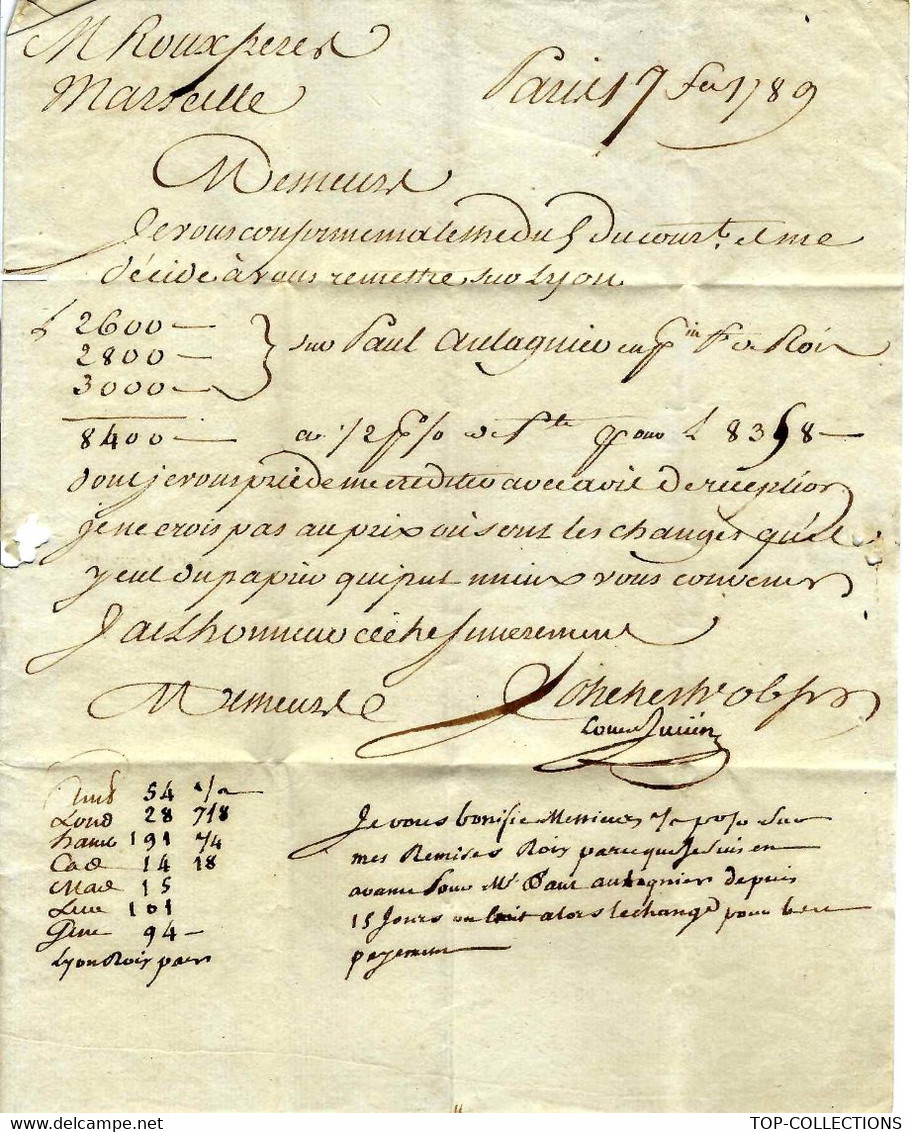 M Roux freres
Marseille
Paris 17 fev 1789
Messieurs
Je vous confirme ma lettre du 5 du cour.t et me
décide à vous remettre sur Lyon
L 2600 —
2800 —
3000 —
sur Paul Aulagnier en p.in Pt de Rois
8400 — a 1/2 p % de P.te pour L 8358 —
dont je vous prie de me crediter avec avis de reception
je ne crois pas au prix où sont les changes qu'il
y eut du papier qui put mieux vous convenir
J'ai l'honneur d'être sincerement
Messieurs
Louis Julien
54 1/2
Lond 28 7/8
hamb 191 3/4
Cad 14 18
Mad 15
Livo 101
Gene 94 —
Lyon Rois pair
Je vous bonifie Messieurs 1/2 p % sur
mes Remises Rois parce que Je suis en
avance pour Mr Paul aulagnier depuis
15 Jours on fait alors le change pour ce
payement
TOP-COLLECTIONS